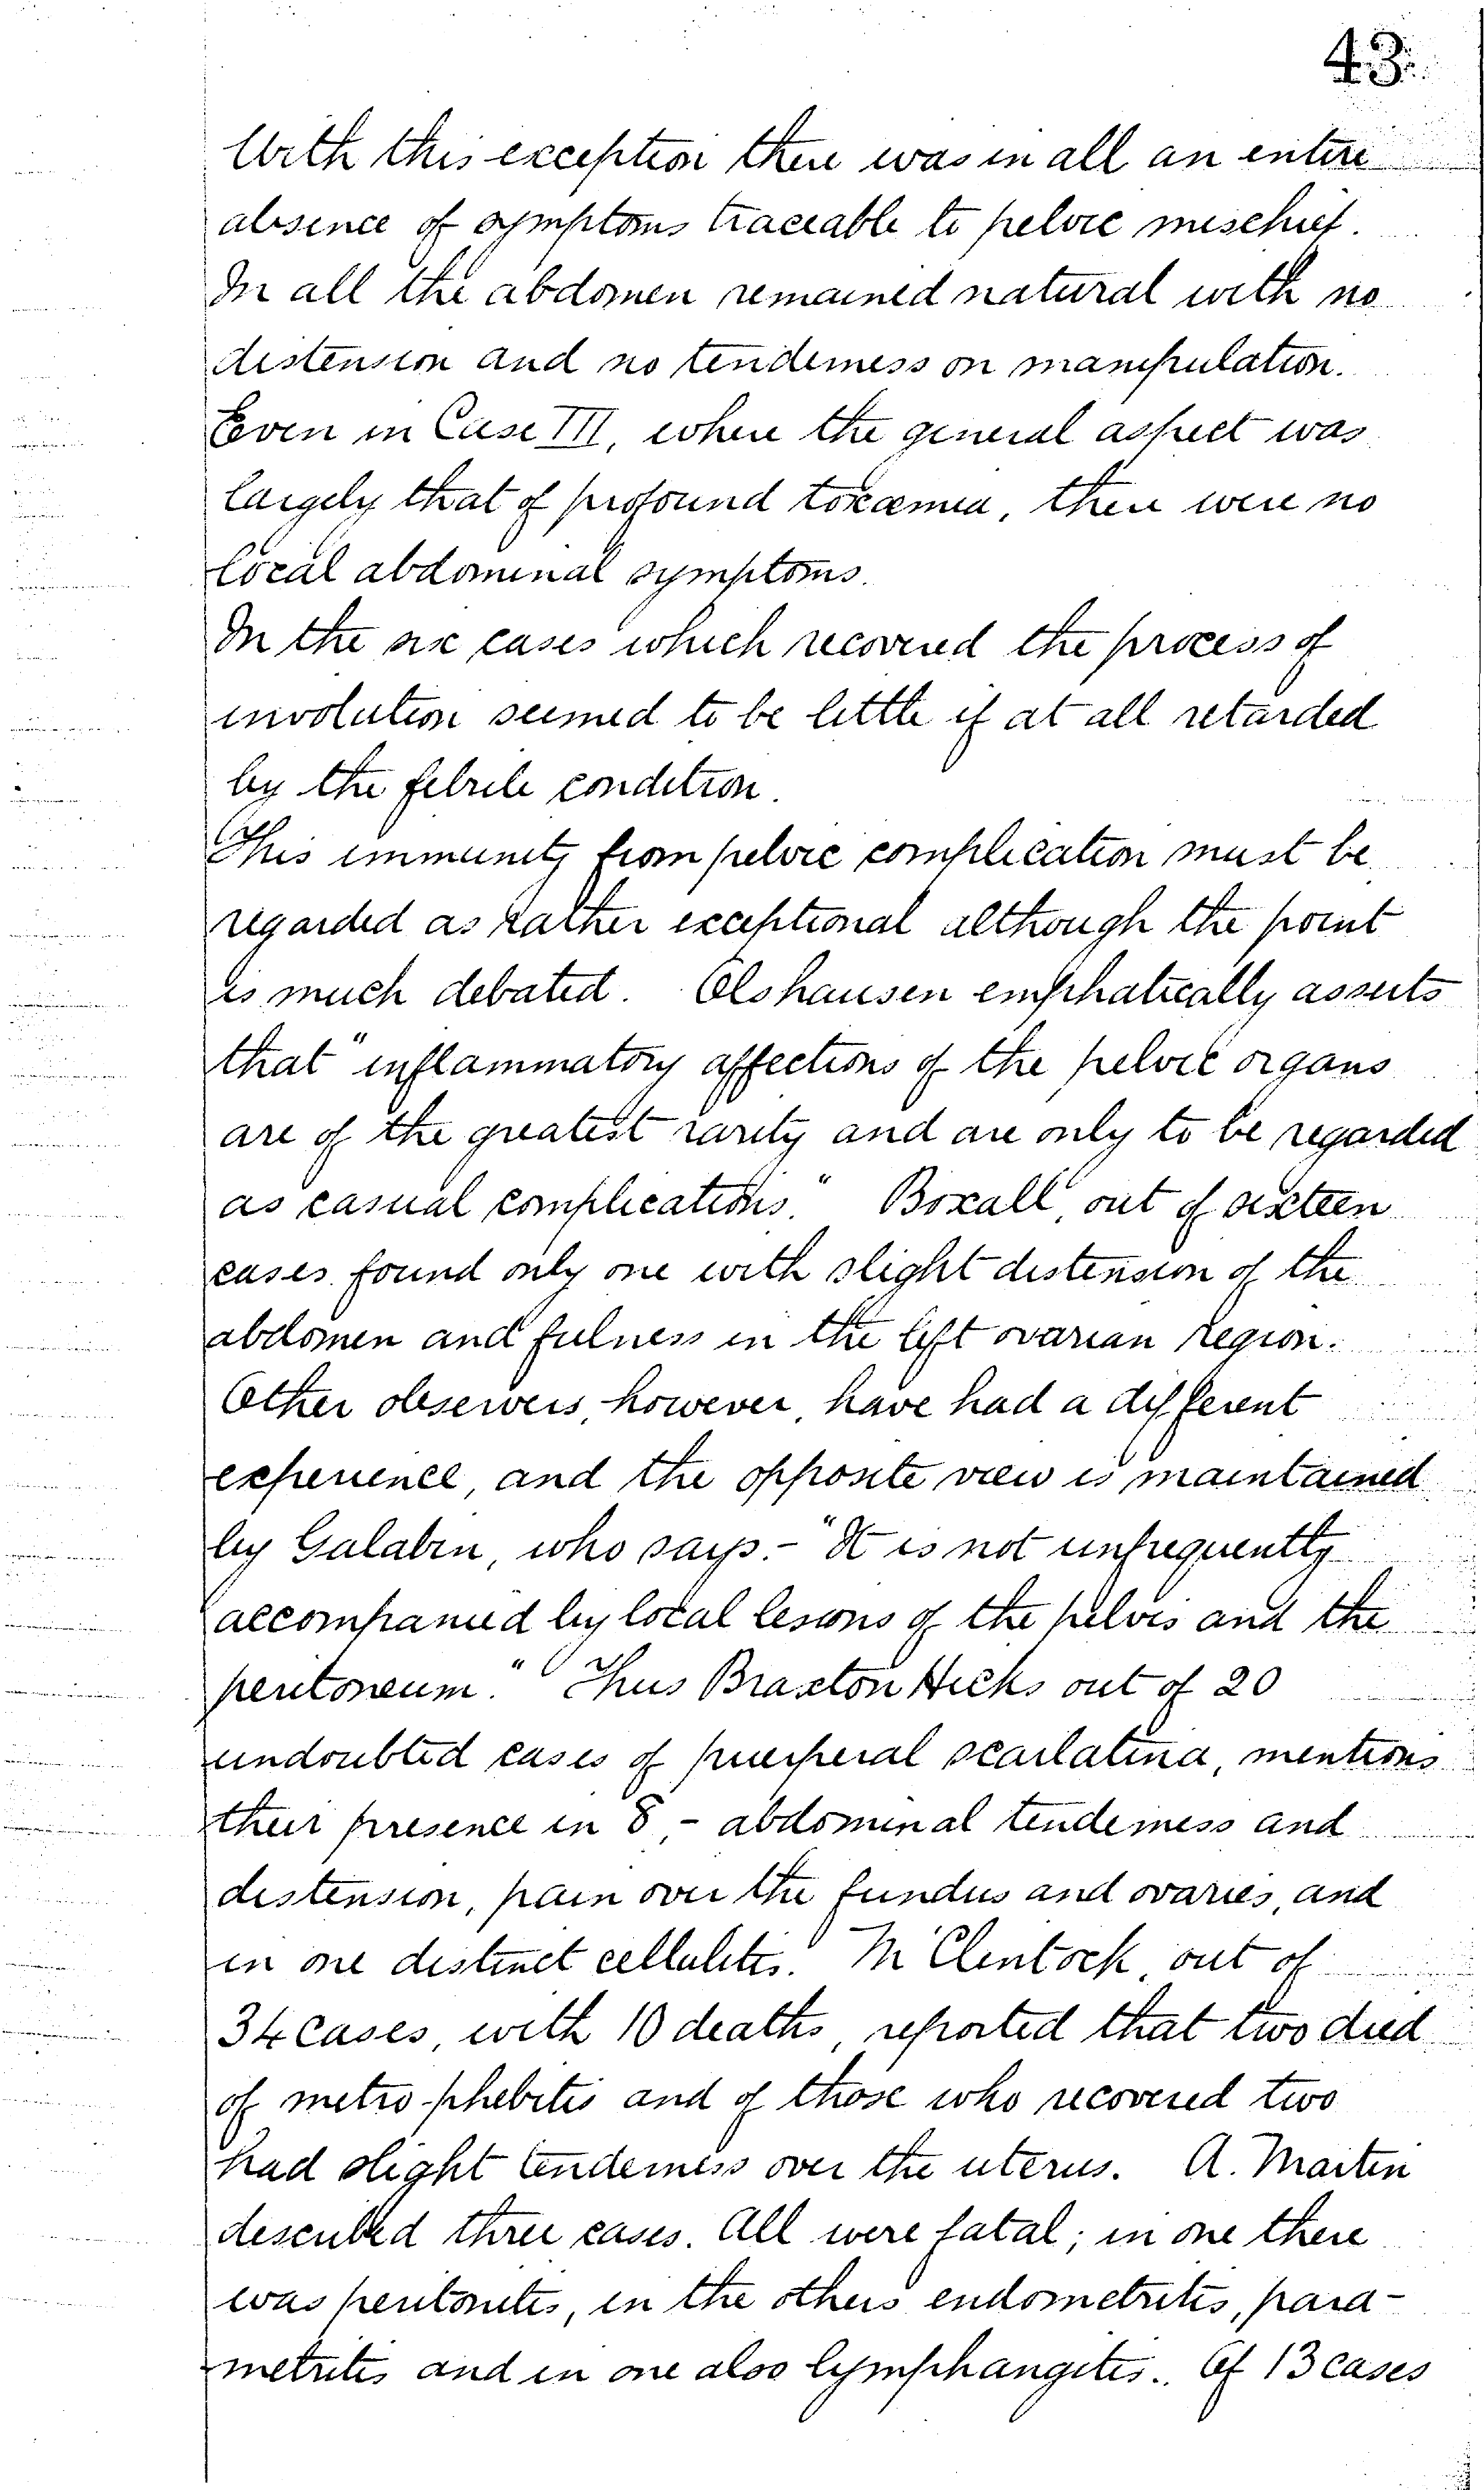 43.
With this exception there was in all an entire
absence of symptoms traceable to pelvic mischief.
In all the abdomen remained natural with no
distension and no tenderness on manipulation.
Even in Case III, where the general aspect was
largely that of profound toxæmia, there were no
local abdominal symptoms.
In the six cases which recovered the process of
involution seemed to be little if at all retarded
by the febrile condition.
This immunity from pelvic complication must be
regarded as rather exceptional although the point
is much debated. Olshausen emphatically asserts
that "inflammatory affections of the pelvic organs
are of the greatest rarity and are only to be regarded
as casual complications." Boxall, out of sixteen
cases found only one with slight distension of the
abdomen and fulness in the left ovarian region.
Other observers, however, have had a different
experience, and the opposite view is maintained
by Galabin, who says.- "It is not unfrequently
accompanied by local lesions of the pelvis and the
peritoneum." Thus Braxton Hicks out of 20
undoubted cases of puerperal scarlatina, mentions
their presence in 8, - abdominal tenderness and
distension, pain over the fundus and ovaries, and
in one distinct cellulitis. McClintock, out of
34 cases, with 10 deaths, reported that two died
of metro-phebitis and of those who recovered two
had slight tenderness over the uterus. A. Martin
described three cases. All were fatal; in one there
was peritonitis, in the others endometritis, para-
metritis and in one also lymphangitis. Of 13 cases